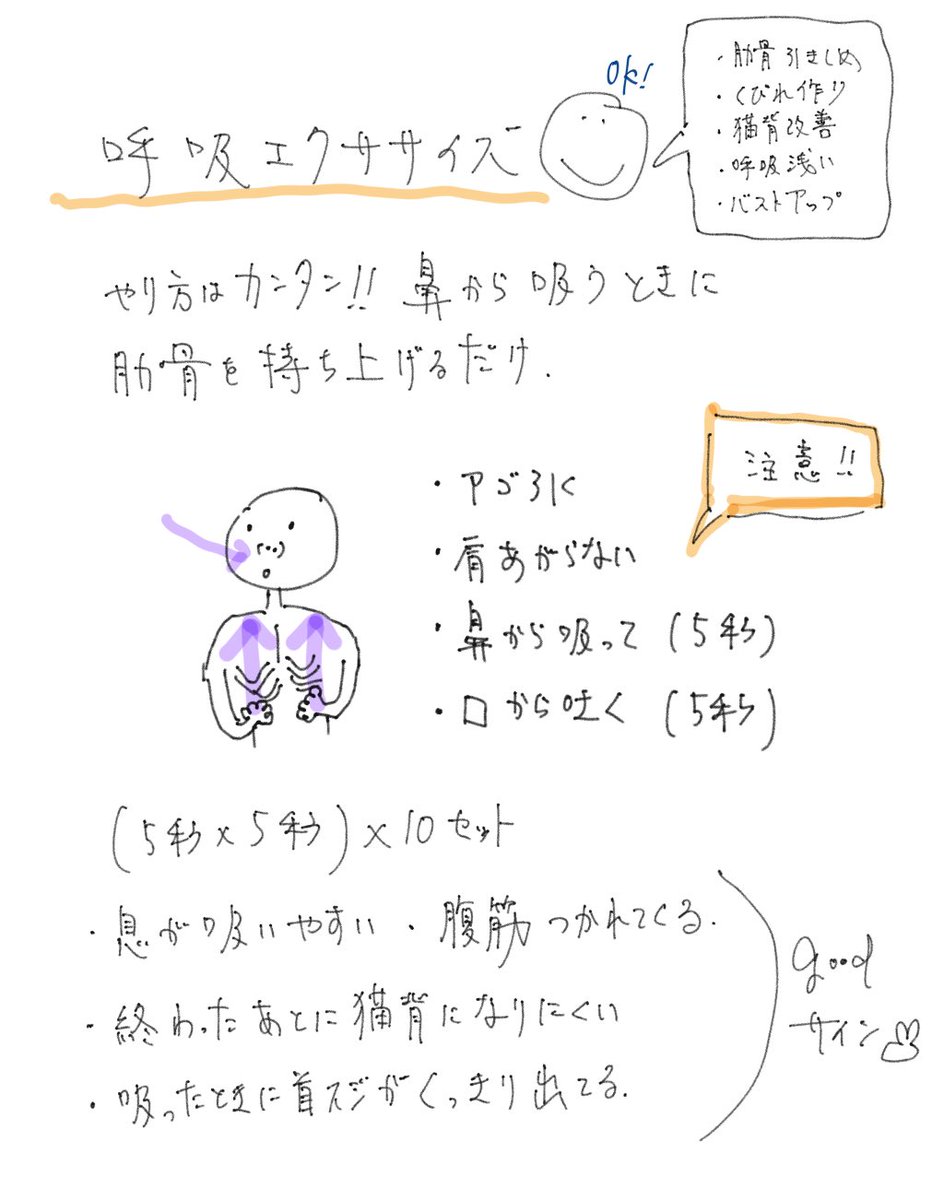 呼吸エクササイズ
OK!
・肋骨引きしめ
・くびれ作り
・猫背改善
・呼吸浅い
・バストアップ
やり方はカンタン!! 鼻から吸うときに
肋骨を持ち上げるだけ.
注意!!
・アゴ引く
・肩あがらない
・鼻から吸って (5秒)
・口から吐く (5秒)
(5秒×5秒)×10セット
・息が吸いやすい ・腹筋つかれてくる.
・終わったあとに猫背になりにくい
・吸ったときに首スジがくっきり出てる.
good
サイン